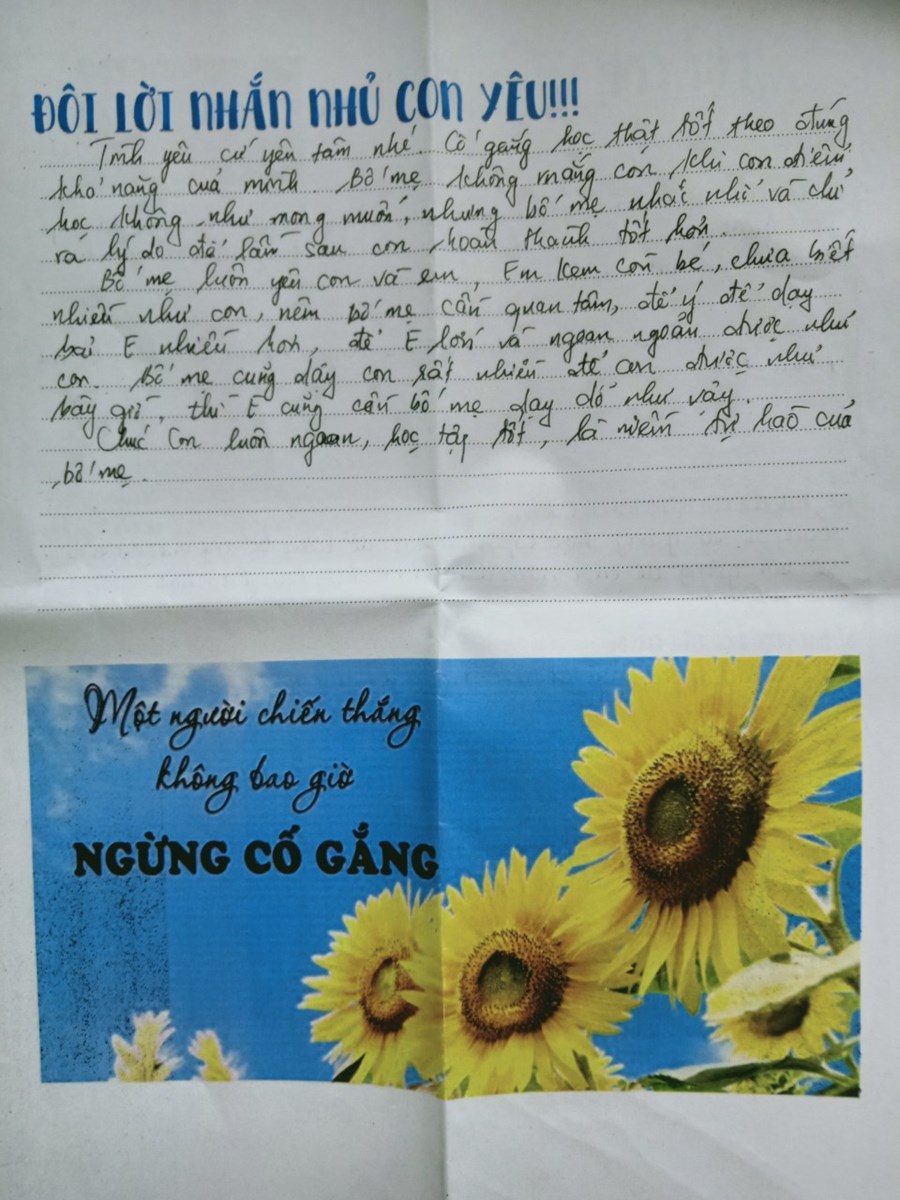 ĐÔI LỜI NHẮN NHỦ CON YÊU!!!
Tình yêu cứ yên tâm nhé. Cố gắng học thật tốt theo đúng
khả năng của mình. Bố mẹ không mắng con khi con điểm
học không như mong muốn, nhưng bố mẹ nhắc nhở và chỉ
ra lý do để lần sau con hoàn thành tốt hơn.
Bố mẹ luôn yêu con và em, Em Kem còn bé, chưa biết
nhiều như con, nên bố mẹ cần quan tâm, để ý để dạy
bải E nhiều hơn, để E lớn và ngoan ngoãn được như
con. Bố mẹ cũng dạy con rất nhiều để con được như
bây giờ, thì E cũng cần bố mẹ dạy dỗ như vậy.
Chúc con luôn ngoan, học tập tốt, là niềm tự hào của
bố mẹ.
Một người chiến thắng
không bao giờ
NGỪNG CỐ GẮNG